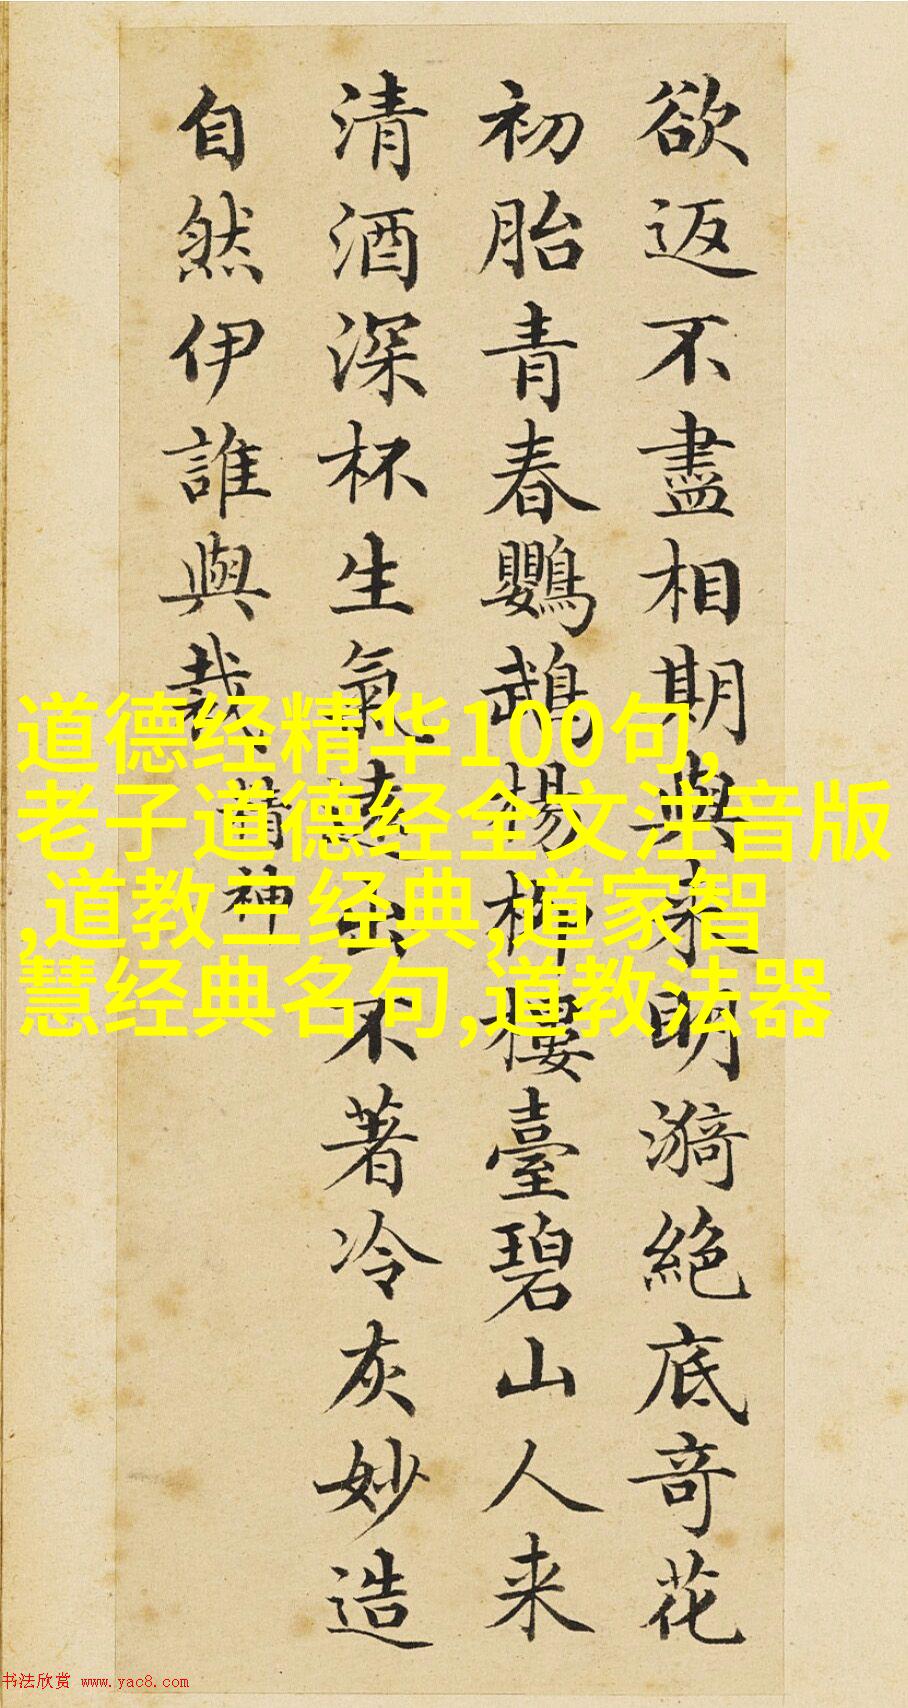 欲返不盡相期與来明漪絶底奇花
初胎青春鸚鵡楊柳樓臺碧山人来
清酒深杯生氣遠出不著冷灰妙造
自然伊誰與裁
精神
道德经精华100句,
老子道德经全文注音版
,道教三经典,道家智
慧经典名句,道教法器
书法欣赏 www.yac8.com